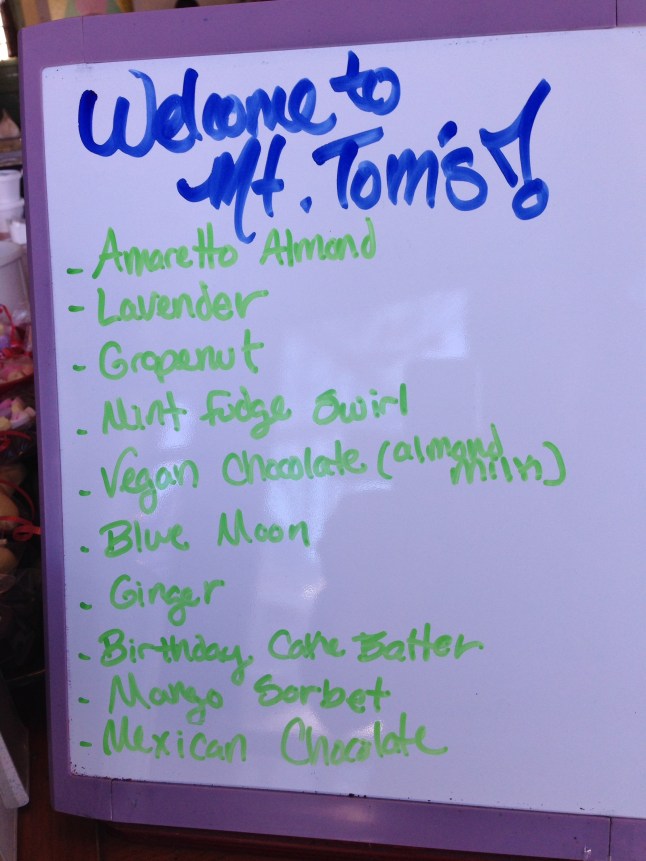 Welcome to
Mt. Tom's!
- Amaretto Almond
- Lavender
- Grapenut
- Mint fudge swirl
- Vegan Chocolate (almond milk)
- Blue Moon
- Ginger
- Birthday Cake Batter
- Mango Sorbet
- Mexican Chocolate